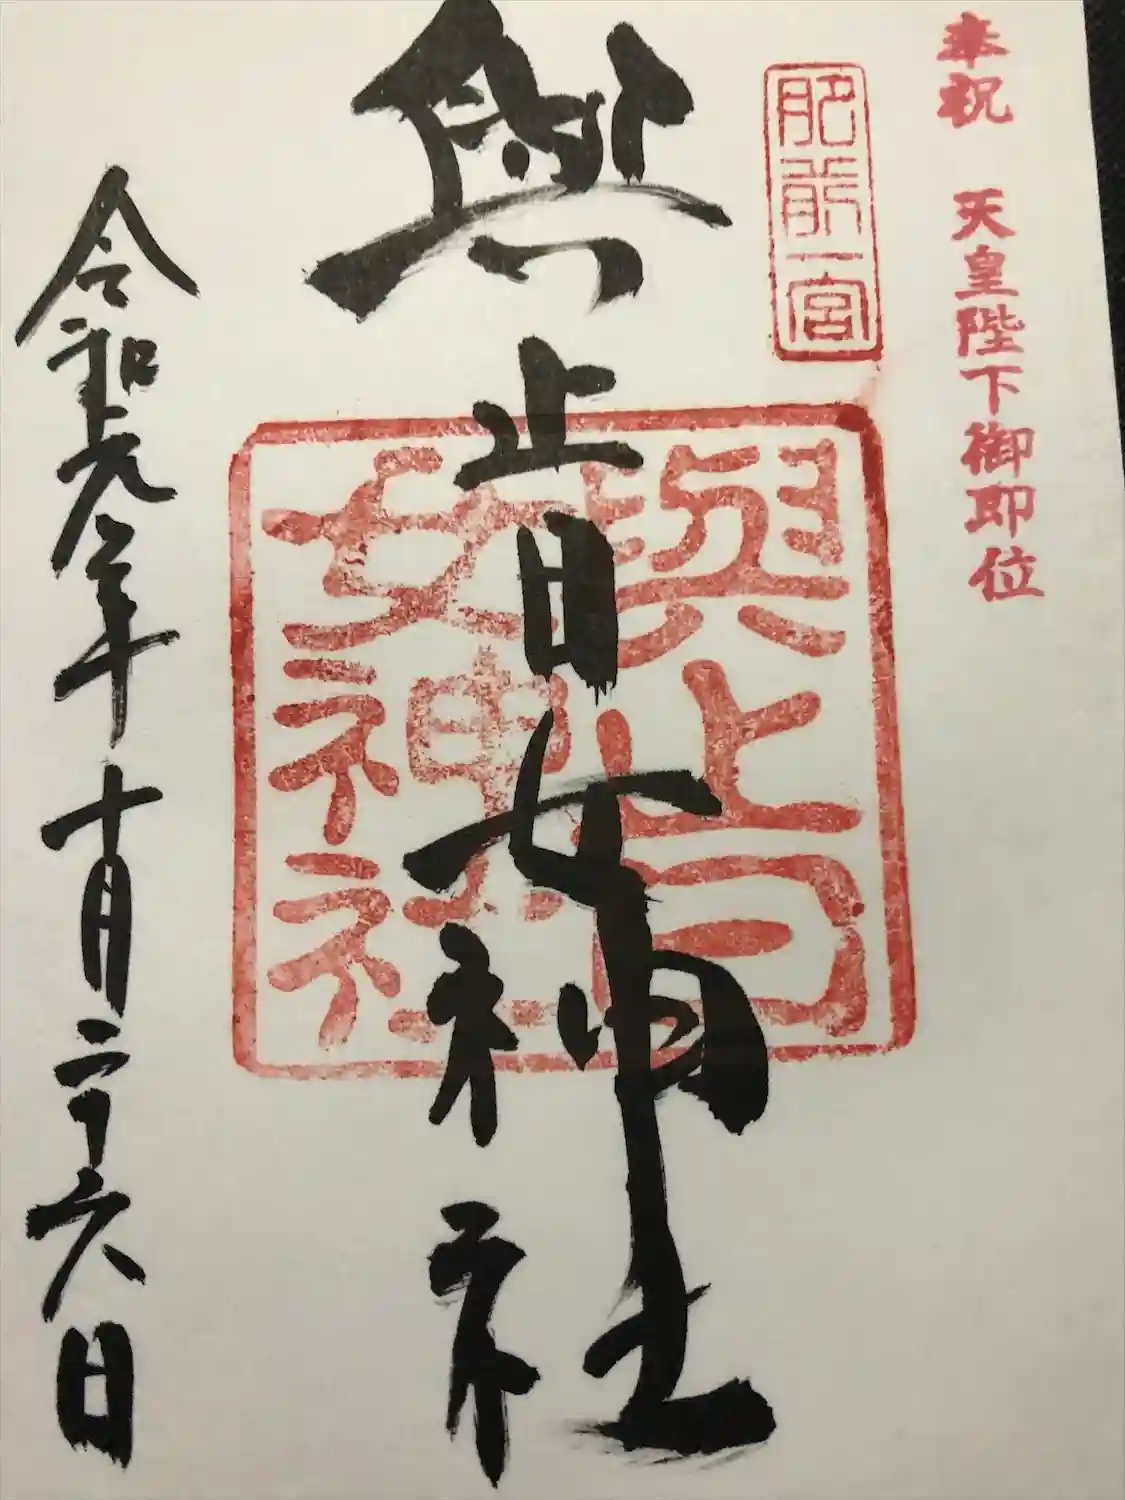 奉祝 天皇陛下御即位
肥前一宮
與止日女神社
與止日女神社
令和元年十月二十六日